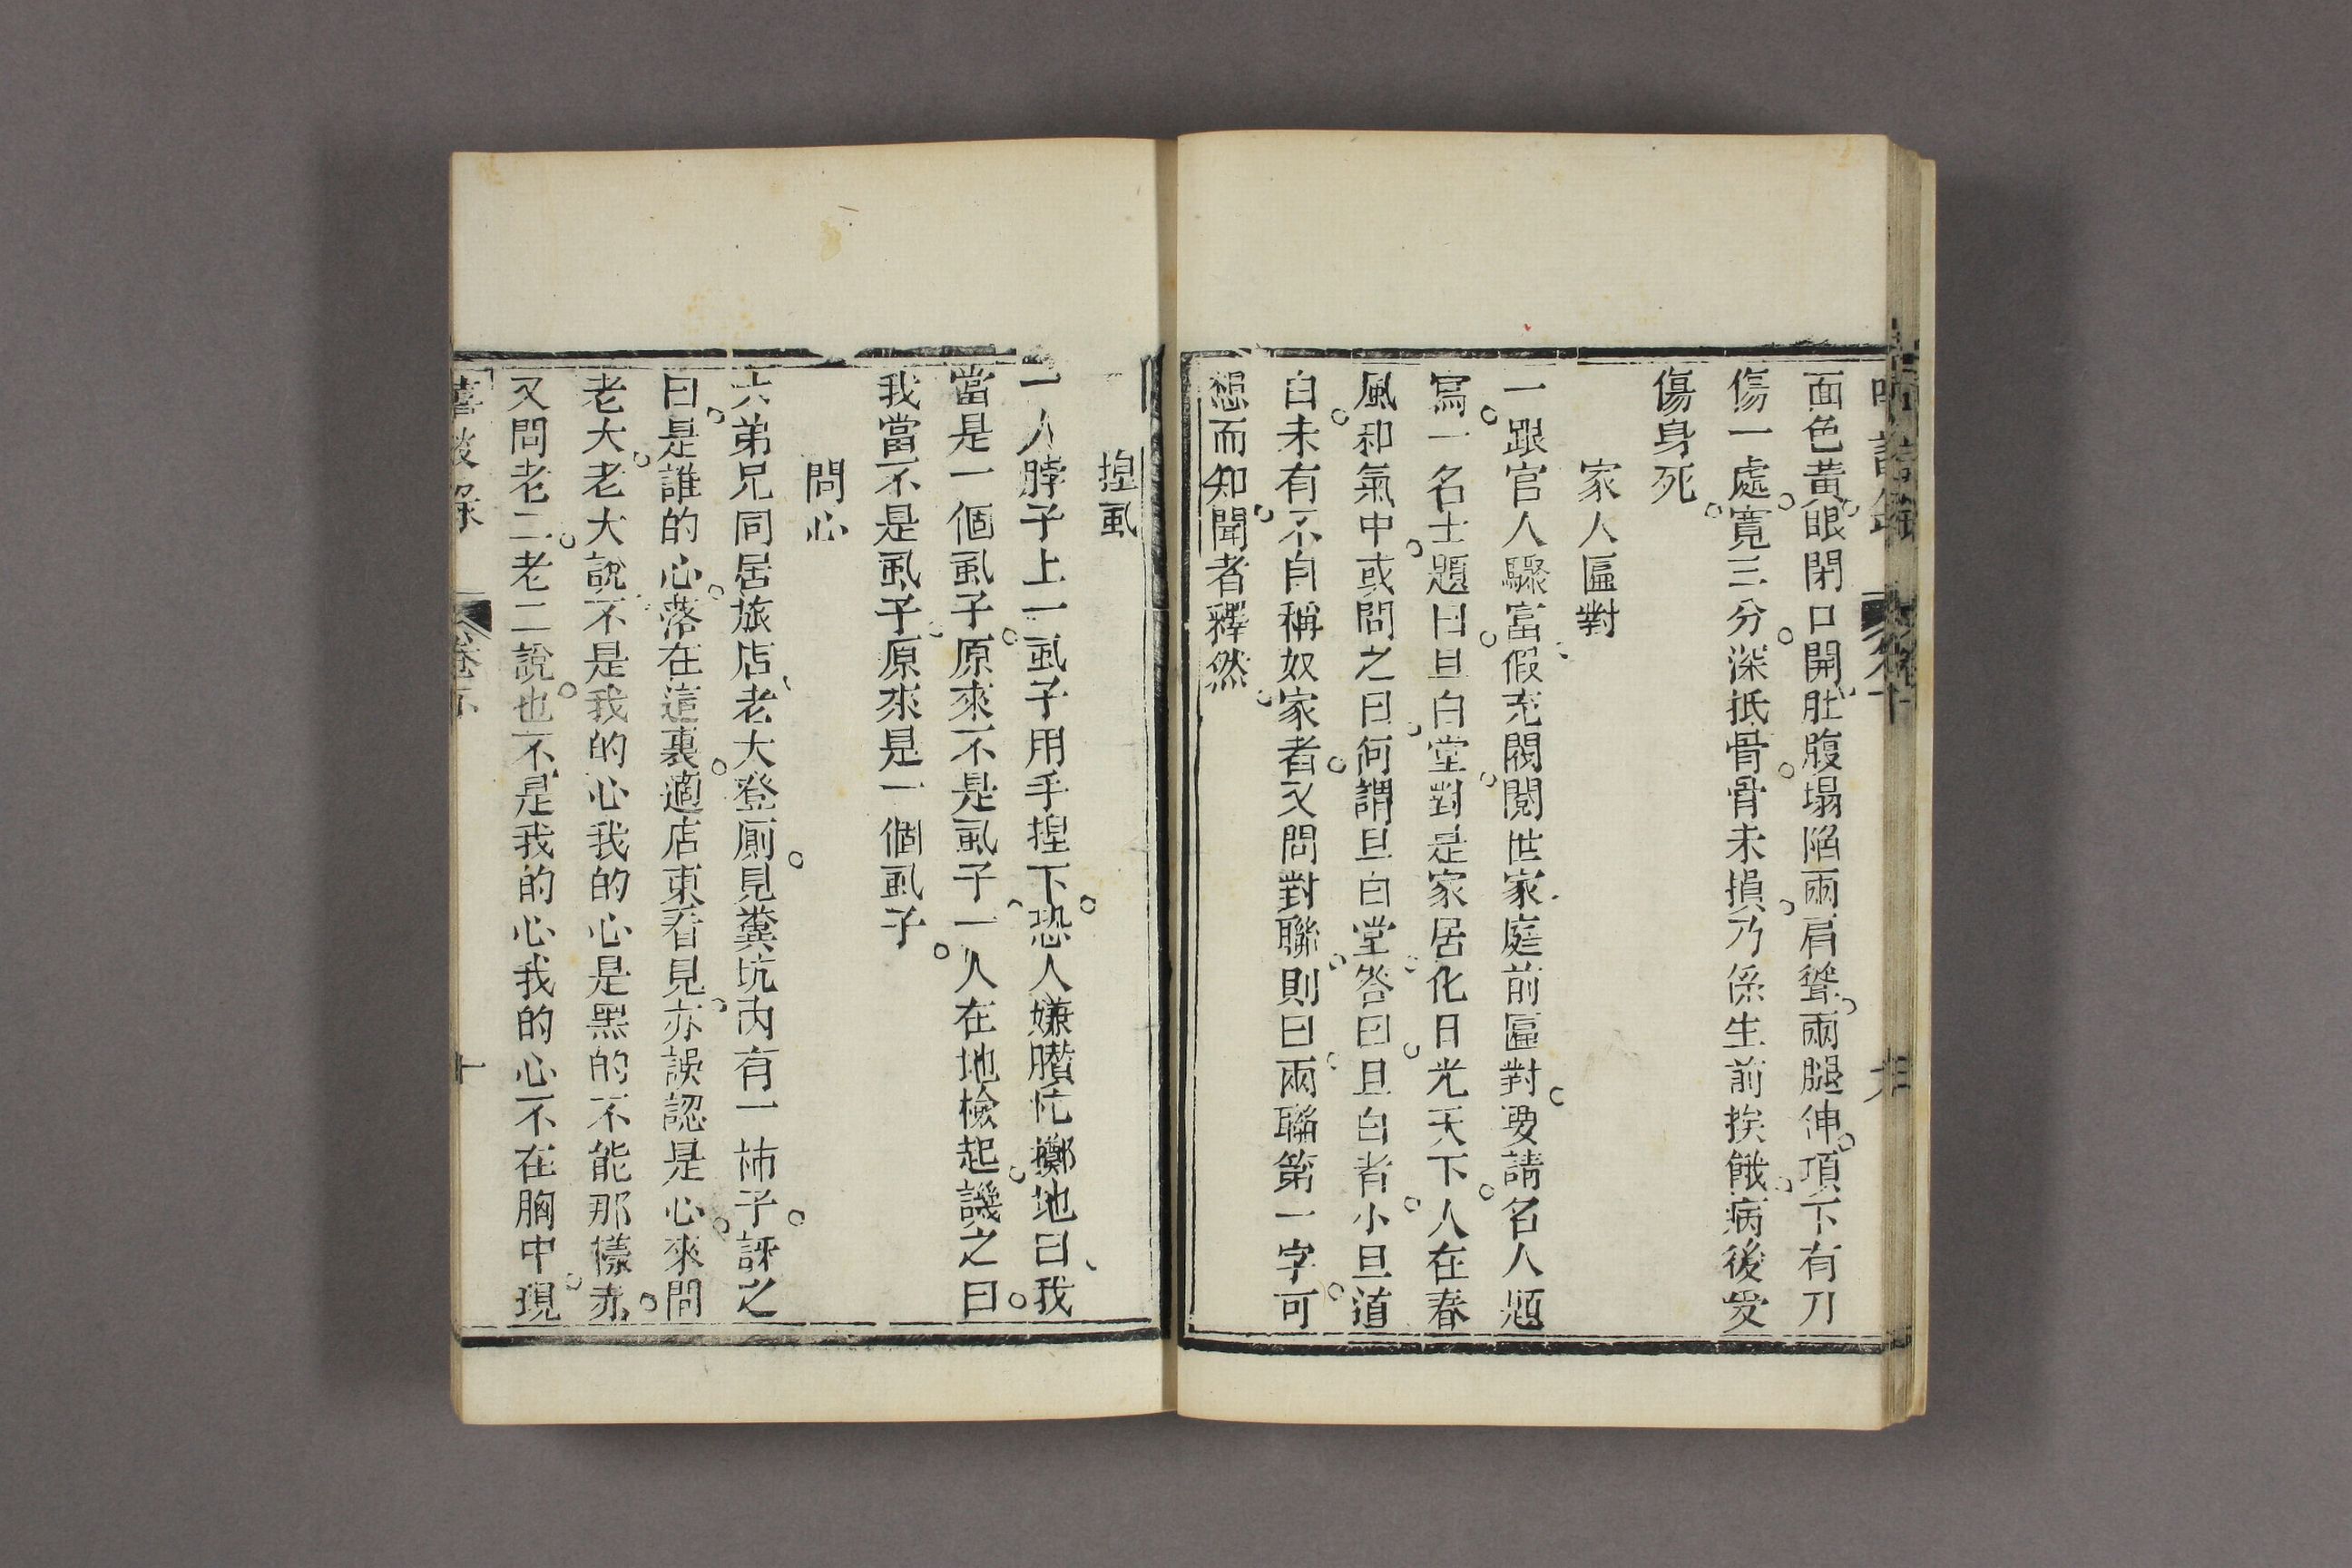 面色黃眼閉口開肚腹塌陷兩肩聳兩腿伸項下有刀
傷一處寬三分深抵骨骨未損乃係生前挨餓病後受
傷身死
家人匾對
一跟官人驟富假充閥閱世家庭前匾對要請名人題
寫一名士題曰旦白堂對是家居化日光天下人在春
風和氣中或問之曰何謂旦白堂答曰旦白者小旦道
白未有不自稱奴家者又問對聯則曰兩聯第一字可
想而知聞者釋然
揑虱
一人脖子上一虱子用手揑下恐人嫌臢忙擲地曰我
當是一個虱子原來不是虱子一人在地檢起譏之曰
我當不是虱子原來是一個虱子
問心
六弟兄同居旅店老大登廁見糞坑內有一柿子訝之
曰是誰的心落在這裏適店東看見亦誤認是心來問
老大老大說不是我的心我的心是黑的不能那樣赤
又問老二老二說也不是我的心我的心不在胸中現